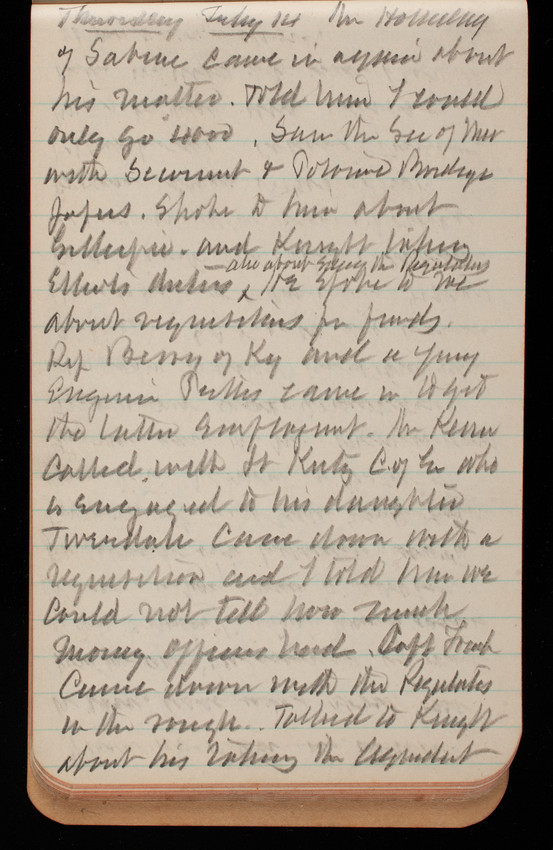 Thursday July 14 Mr
of Sabine came in again about
his matter. Told him I could
only go 4000. Saw the Sec of War
with Securement & Potomac Bridge
papers. Spoke to him about
Gillespie. and Knight taking
Elliots duties,
also about the Regulations
He spoke to me
about requisitions for funds.
Rep Berry of Ky and a young
Engineer came in to get
the latter employment. Mr Kerr
called with Lt Kutz C. of E. who
is engaged to his daughter
Twerdale came down with a
requisition and I told him we
could not tell how much
money officers had. Capt
came down with the Regulates
in the rough. Talked to Knight
about his taking the